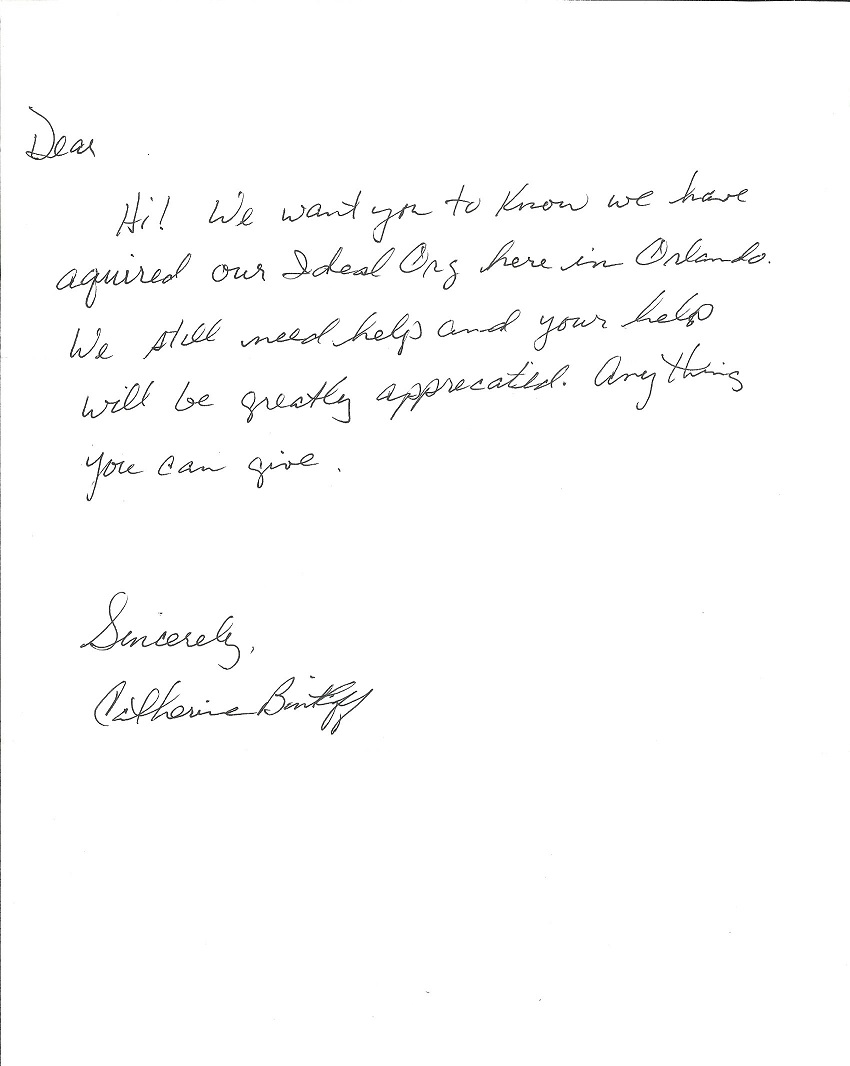 Dear
Hi! We want you to Know we have
aquired our Ideal Org here in Orlando.
We still need help and your help
will be greatly apprecated. Anything
you can give.
Sincerely,
Catherine